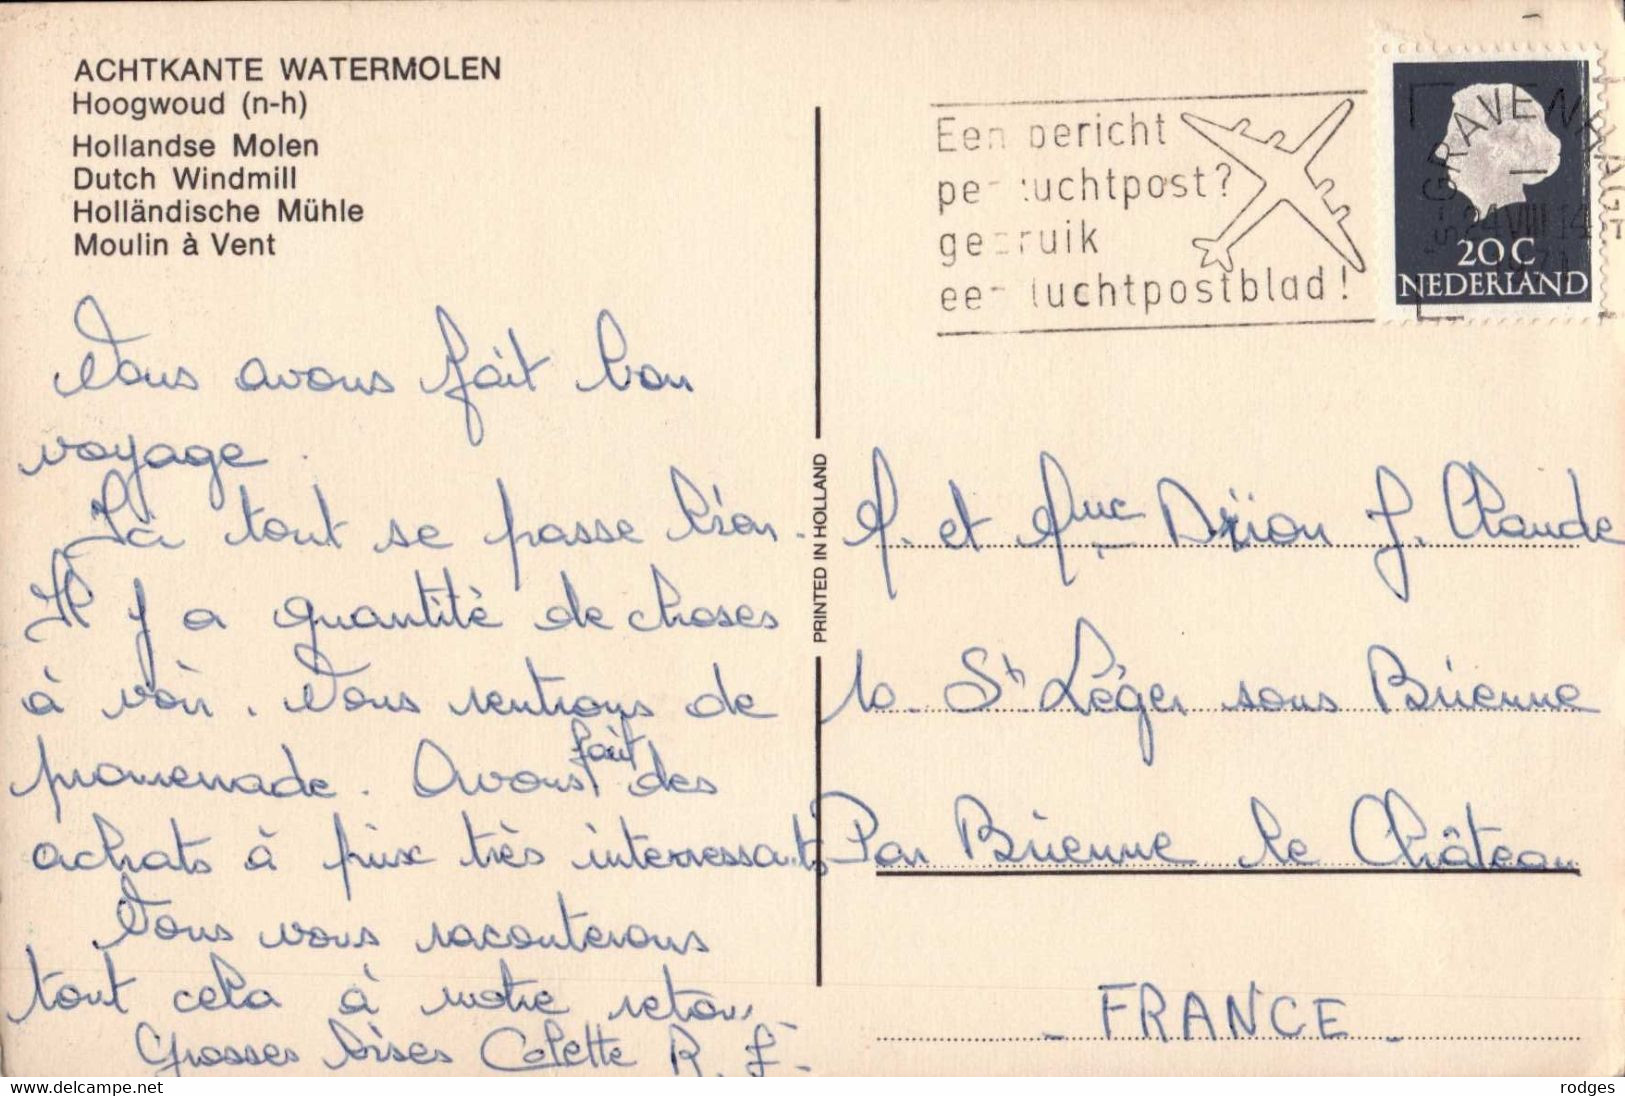 ACHTKANTE WATERMOLEN
Hoogwoud (n-h)
Hollandse Molen
Dutch Windmill
Holländische Mühle
Moulin à Vent
Een bericht
per luchtpost?
gebruik
een luchtpostblad!
'S-GRAVENHAGE
24 VIII 14
1971
20 C
NEDERLAND
Nous avons fait bon
voyage.
Ici tout se passe bien.
Il y a quantité de choses
à voir. Nous rentrons de
promenade. Avons fait des
achats à prix très interressants
Nous vous raconterons
tout cela à notre retour
Grosses bises Colette R. J.
PRINTED IN HOLLAND
M. et Mme Drion J. Claude
10. St Léger sous Brienne
Par Brienne le Château
- FRANCE -
www.delcampe.net
rodges